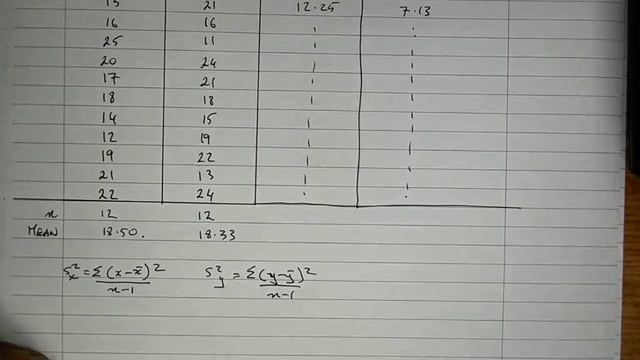 15 21 12.25 7.13
16 16
25 11
20 24
17 21
18 18
14 15
12 19
19 22
21 13
22 24
n 12 12
MEAN 18.50. 18.33
S²x = Σ(x-x̄)²/n-1 S²y = Σ(y-ȳ)²/n-1